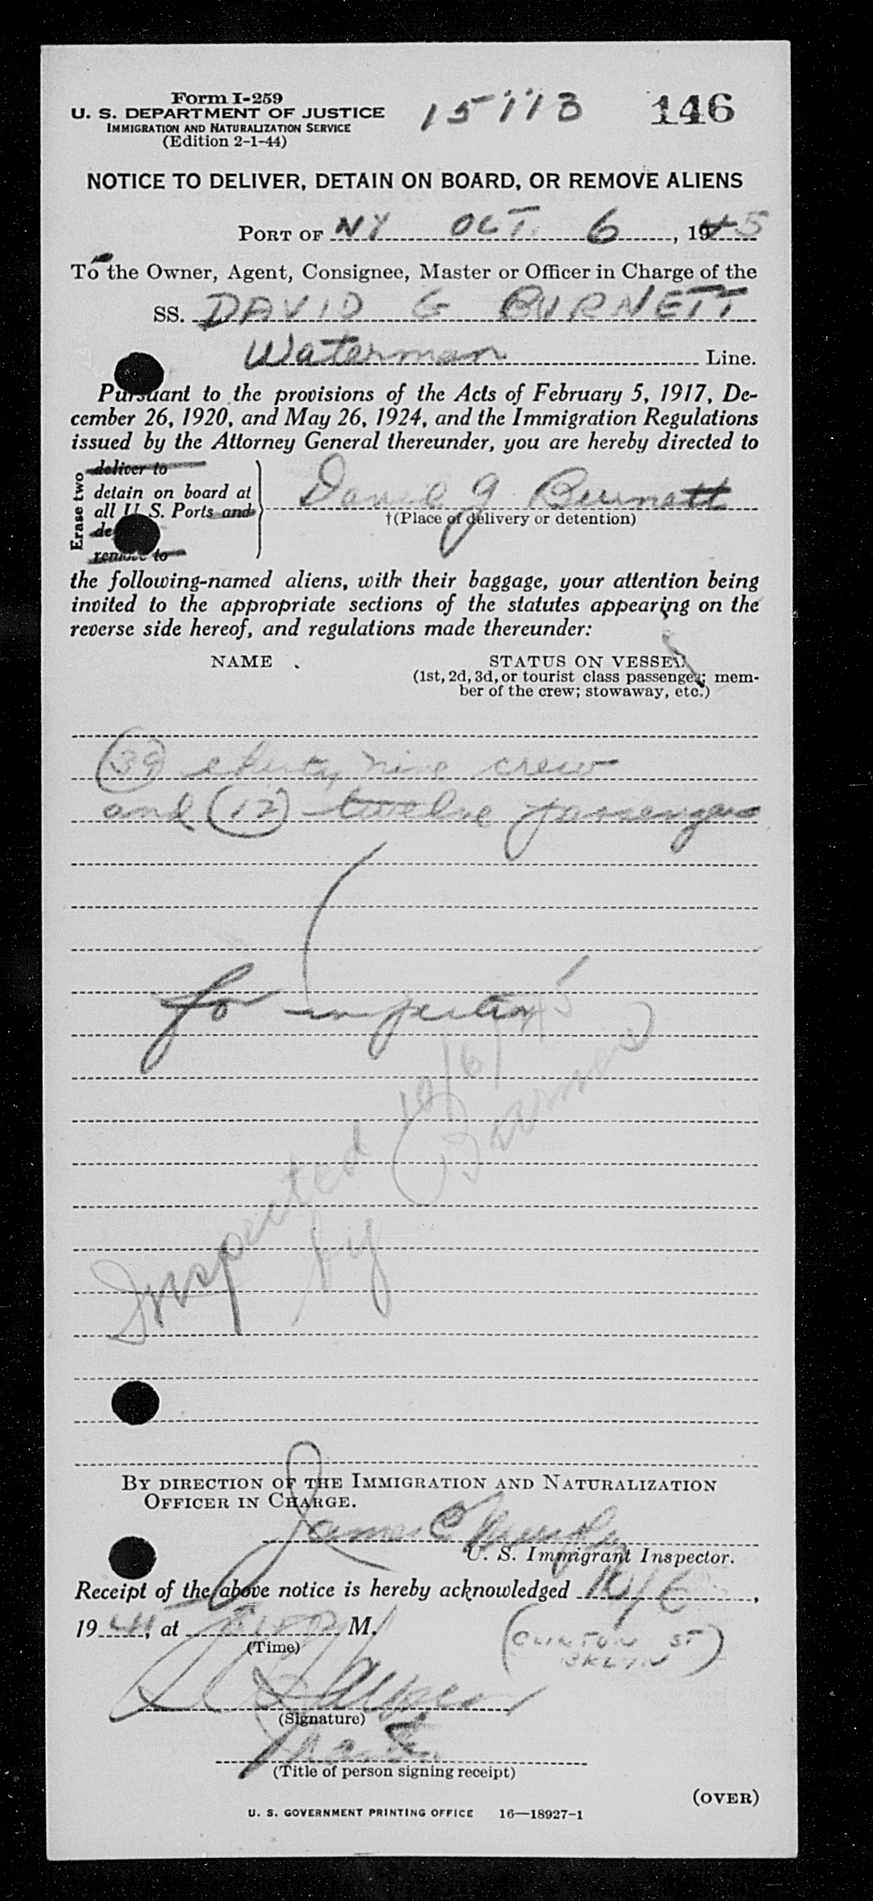 Form I-259
U. S. DEPARTMENT OF JUSTICE
IMMIGRATION AND NATURALIZATION SERVICE
(Edition 2-1-44)
15113
146
NOTICE TO DELIVER, DETAIN ON BOARD, OR REMOVE ALIENS
PORT OF NY OCT. 6, 1945
To the Owner, Agent, Consignee, Master or Officer in Charge of the
SS. DAVID G BURNETT
Waterman Line.
Pursuant to the provisions of the Acts of February 5, 1917, De-
cember 26, 1920, and May 26, 1924, and the Immigration Regulations
issued by the Attorney General thereunder, you are hereby directed to
Erase two
deliver to
detain on board at
all U. S. Ports and
de
remove to
David G Burnatt
†(Place of delivery or detention)
the following-named aliens, with their baggage, your attention being
invited to the appropriate sections of the statutes appearing on the
reverse side hereof, and regulations made thereunder:
NAME
STATUS ON VESSEL
(1st, 2d, 3d, or tourist class passenger; mem-
ber of the crew; stowaway, etc.)
(39) thirty nine crew
and (12) twelve passengers
for inspection
Inspected 10/6/45
by
BY DIRECTION OF THE IMMIGRATION AND NATURALIZATION
OFFICER IN CHARGE.
James
U. S. Immigrant Inspector.
Receipt of the above notice is hereby acknowledged 10/6,
19, at M.
(Time)
(CLINTON ST
BKLYN)
(Signature)
Master
(Title of person signing receipt)
(OVER)
U. S. GOVERNMENT PRINTING OFFICE 16—18927-1